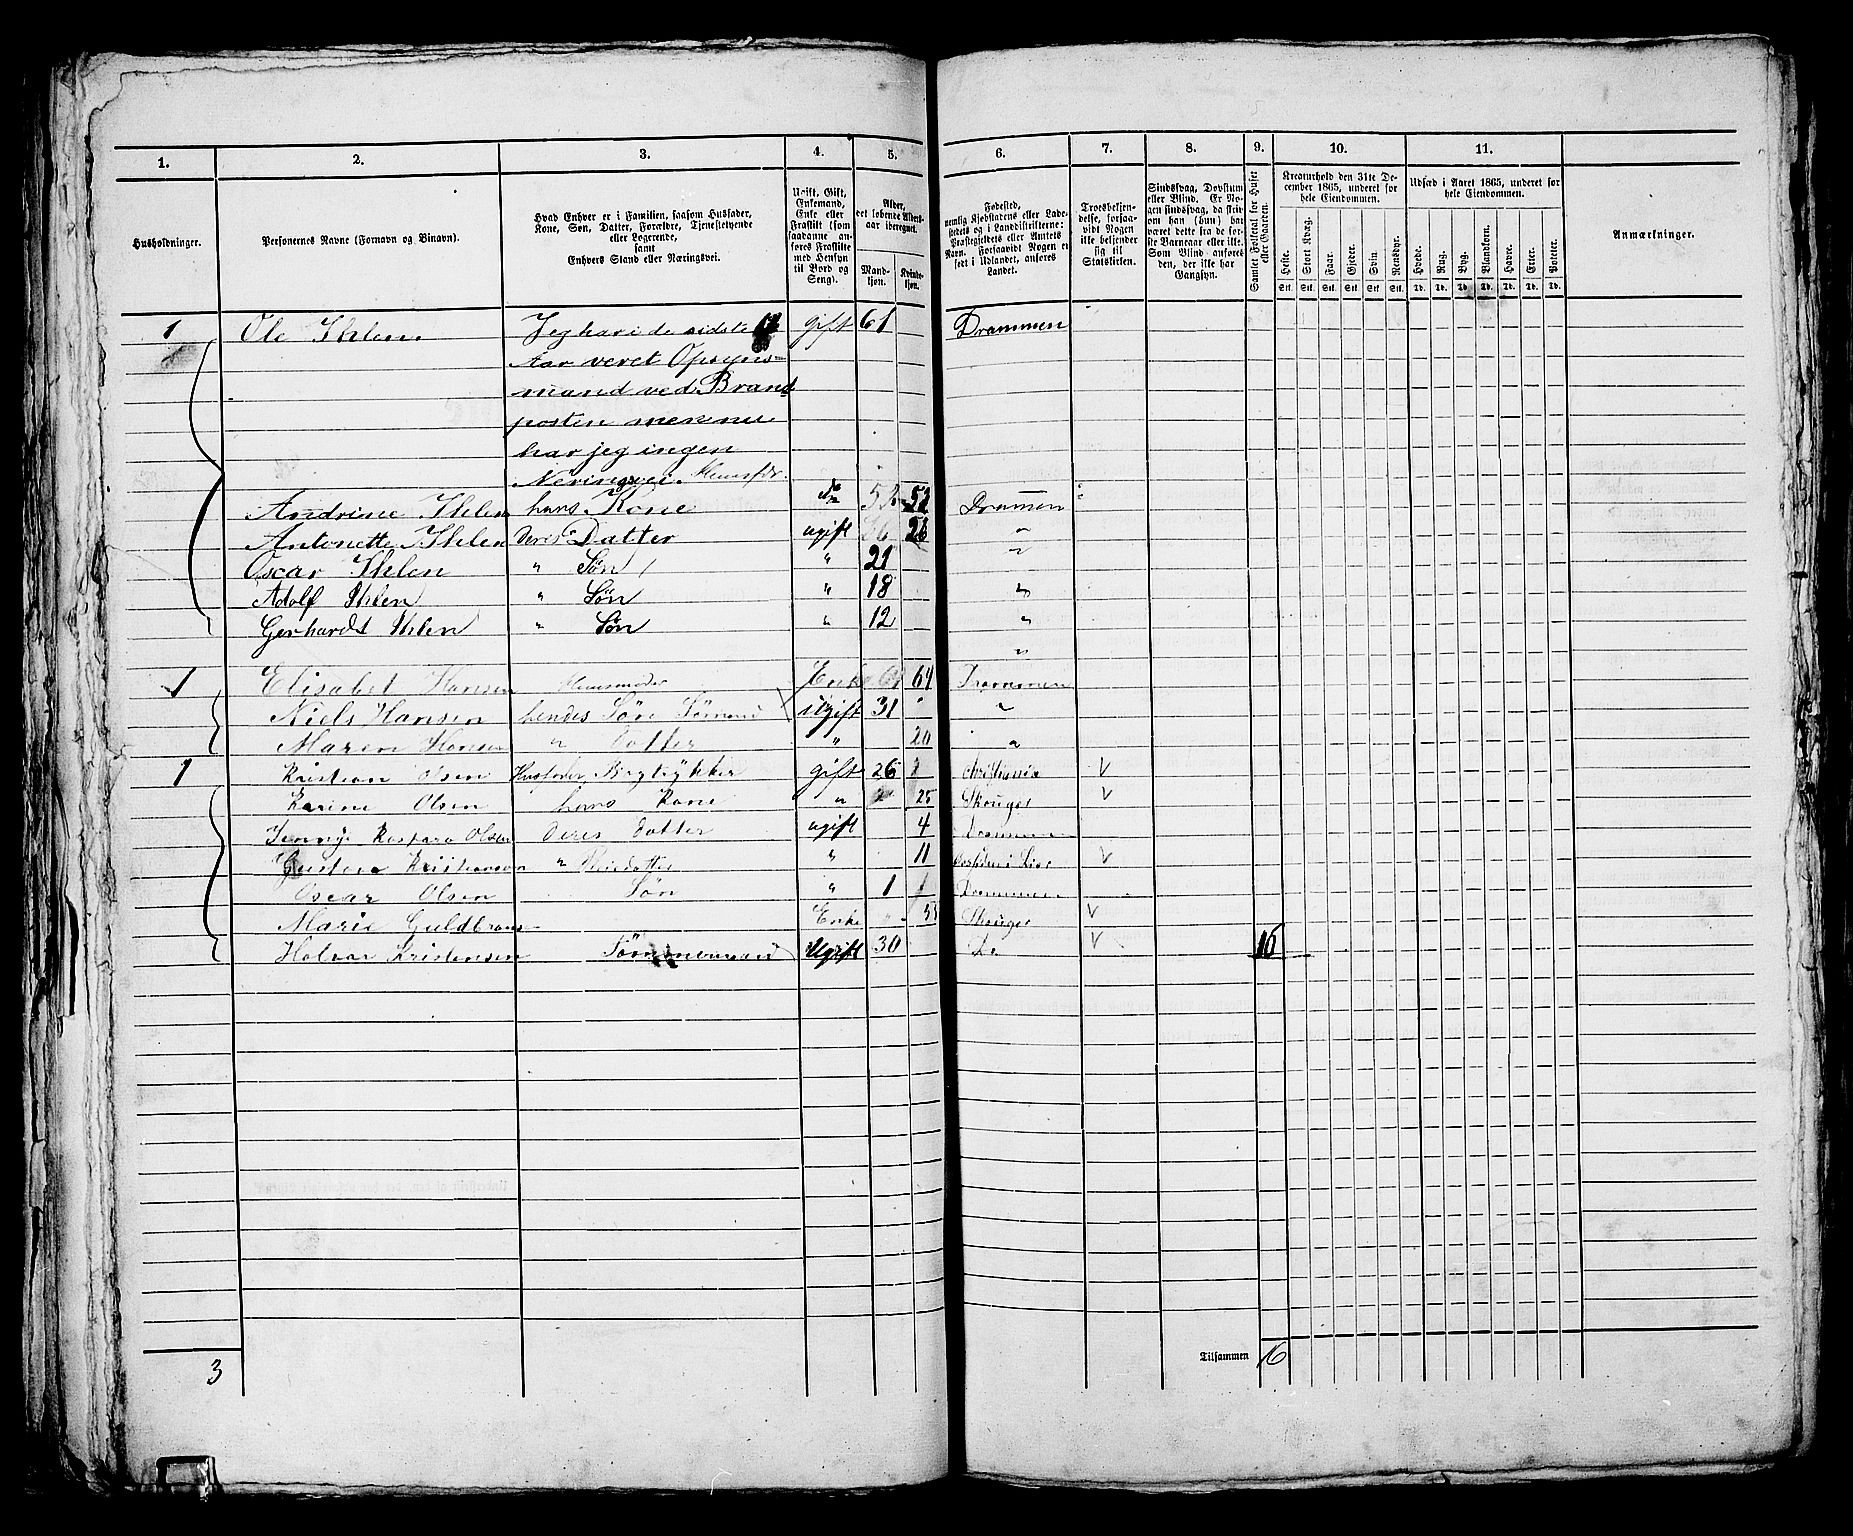 1. 2. 3. 4. 5. 6. 7. 8. 9. 10. 11.
Husholdninger.
Personernes Navne (Fornavn og Binavn).
Hvad Enhver er i Familien, saasom Husfader,
Kone, Søn, Datter, Forældre, Tjenestetyende
eller Logerende,
samt
Enhvers Stand eller Næringsvei.
Ugift, Gift,
Enkemand,
Enke eller
Fraskilt (som
saadanne an-
føres Fraskilte
med Hensyn
til Bord og
Seng).
Alder,
det løbende Alders-
aar iberegnet.
Mand-
kjøn.
Kvinde-
kjøn.
Fødested,
nemlig Kjøbstadens eller Lade-
stedets og i Landdistrikterne:
Præstegjeldets eller Amtets
Navn. Forsaavidt Nogen er
født i Udlandet, anføres
Landet.
Troesbekjen-
delse, forsaa-
vidt Nogen
ikke bekjender
sig til
Statskirken.
Sindssvag, Døvstum
eller Blind. Er No-
gen sindssvag, da skriv
om han (hun) har
været dette fra de før-
ste Barneaar eller ikke.
Som Blind anføres
den, der ikke har
Gangsyn.
Samlet Folketal for Huset
eller Gaarden.
Kreaturhold den 31te De-
cember 1865, underet for
hele Eiendommen.
Heste. Stort Kvæg. Faar. Gjeder. Svin. Rensdyr.
Stk. Stk. Stk. Stk. Stk. Stk.
Udsæd i Aaret 1865, underet for
hele Eiendommen.
Hvede. Rug. Byg. Blandkorn. Havre. Erter. Poteter.
Td. Td. Td. Td. Td. Td. Td.
Anmærkninger.
1 Ole Ihlen. Jeg har i de sidste gift 61 Drammen
Aar veret Opsyns-
mand ved Brand
posten men nu
har jeg ingen
Neringsvei. Huusfdr.
Andrine Ihlen hans Kone do 52 52 Drammen
Antonette Ihlen deres Datter ugift 26 26 "
Oscar Ihlen " Søn " 21 "
Adolf Ihlen " Søn " 18 "
Gerhardt Ihlen " Søn " 12 "
"
1 Elisabet Hansen Huusmoder Enke 64 Drammen
Niels Hansen hendes Søn Sømand Ugift 31 " "
Maren Hansen " Datter " 20 "
1 Kristian Olsen Husfader Bogtrykker gift 26 Christiania V
Karine Olsen hans Kone " 25 Skouger V
Jennye Kaspara Olsen deres Datter ugift 4 Drammen
Gustava Kristiansen " Pleiedatter " 11 i Lier V
Oscar Olsen Søn " 1 Drammen
Marie Guldbrans- Enke " 53 Skouger V
Halvor Kristensen Tømmermand Ugift 30 Do V 16
3
Tilsammen 16